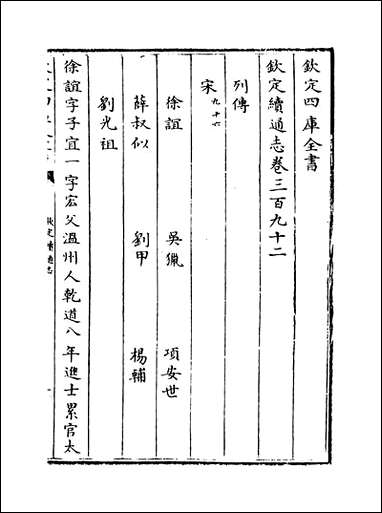 欽定四庫全書
欽定續通志卷三百九十二
列傳
宋九十六
徐誼　吳獵　項安世
薛叔似　劉甲　楊輔
劉光祖
徐誼字子宜一字宏父温州人乾道八年進士累官太
欽定續通志